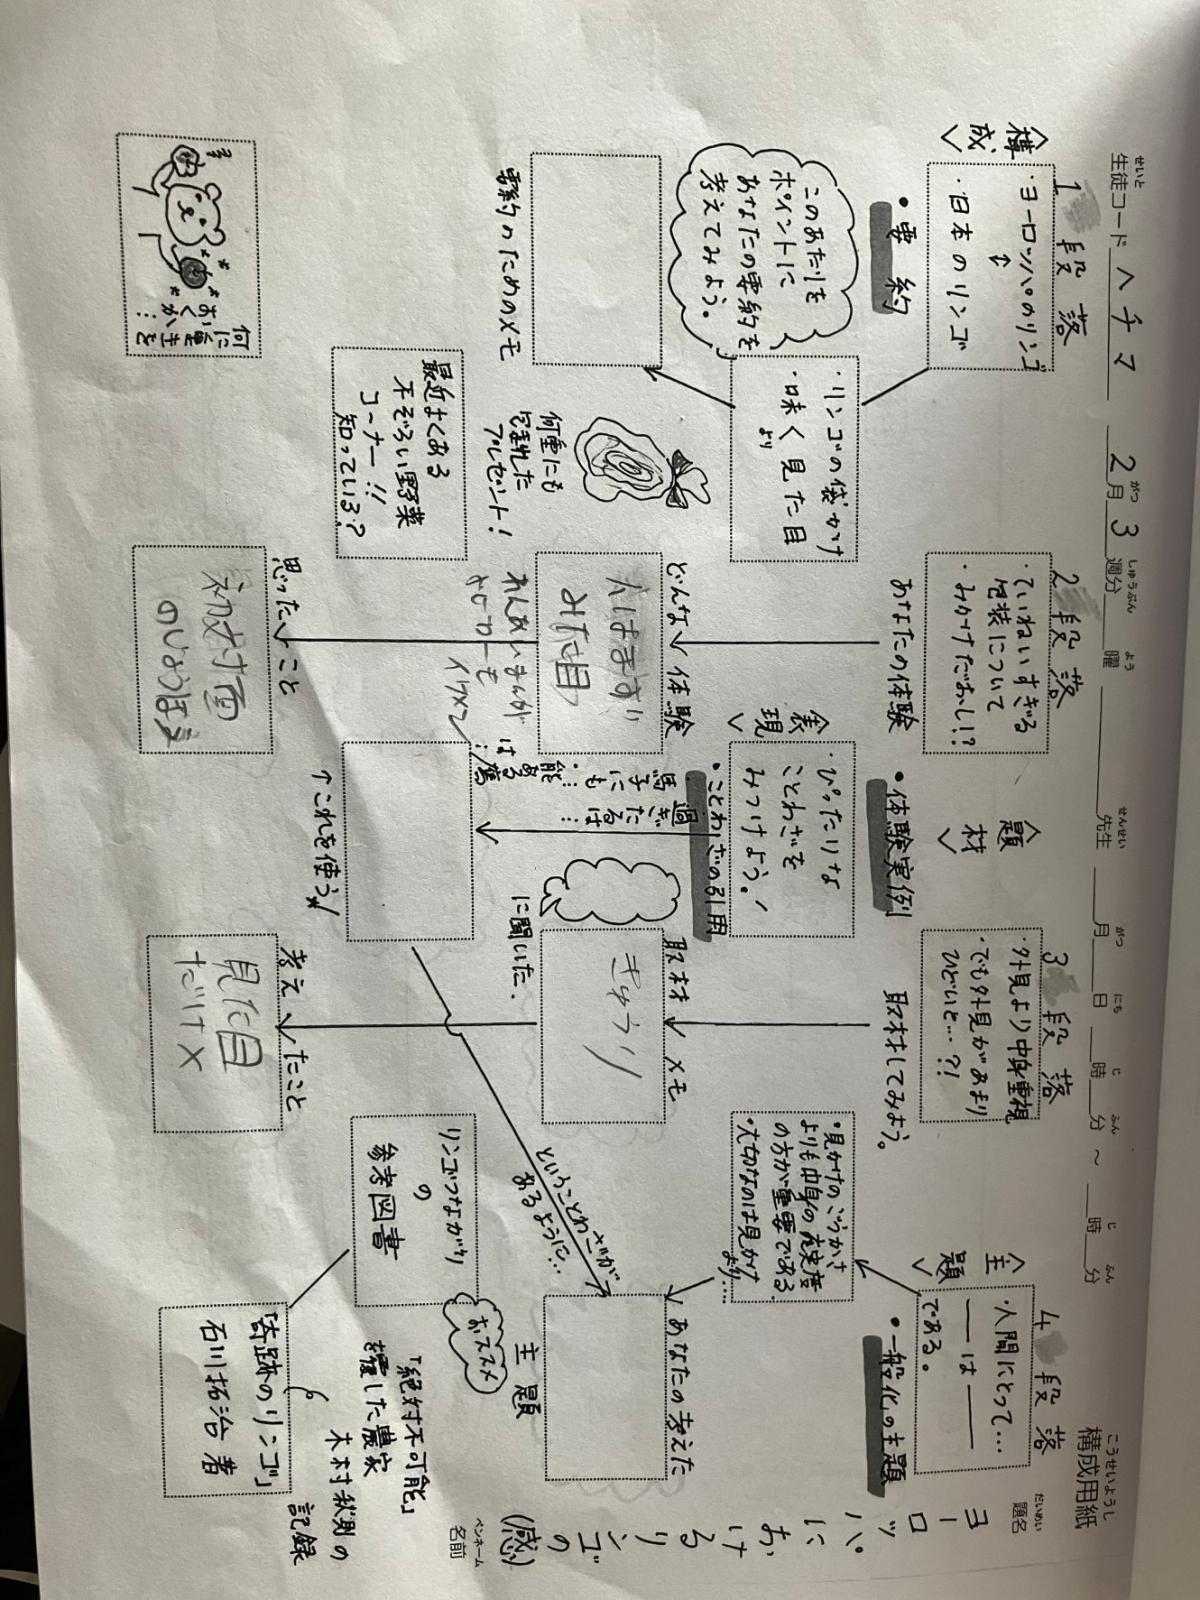 構成用紙
こうせいようし
生徒コード ヘチマ 2月3週分 曜 先生 月 日 時 分 ~ 時 分
せいと がつ しゅうぶん よう せんせい がつ にち じ ふん じ ふん
題名
だいめい
ヨーロッパにおけるリンゴの(感)
ペンネーム
名前
<構成>
1段落
・ヨーロッパのリンゴ
↕
・日本のリンゴ
・要約
・リンゴの袋かけ
・味く見た目
より
このあたりを
ポイントに
あなたの要約を
考えてみよう。
要約のためのメモ
何重にも
包まれた
プレゼント!
最近よくある
不ぞろい野菜
コーナー!!
知っている?
何に
おく
か
2段落
・ていねいすぎる
包装について
・みかけだおし!?
あなたの体験
どんな体験
みた目
れんあいまんが
は
イケメン
思ったこと
初対面
<題材>
・体験実例
<表現>
・ぴったりな
ことわざを
みつけよう!
・ことわざの引用
過ぎたるは…
馬子にも…
・能ある鷹は…
↑これを使う
3段落
・外見より中身重視
・でも外見があまり
ひどいと…?!
取材してみよう。
取材メモ
きゅうり
に聞いた.
考えたこと
見た目
だけ×
<主題>
4段落
・人間にとって…
――は――
である。
・一般化の主題
・見かけのごうかさ
よりも中身の充実度
の方が重要である.
・大切なのは見かけ
より…
あなたの考えた
主題
ということわざが
あるように…
リンゴつながり
の
参考図書
おススメ
「奇跡のリンゴ」
石川拓治 著
「絶対不可能」
を覆した農家
木村秋則の
記録